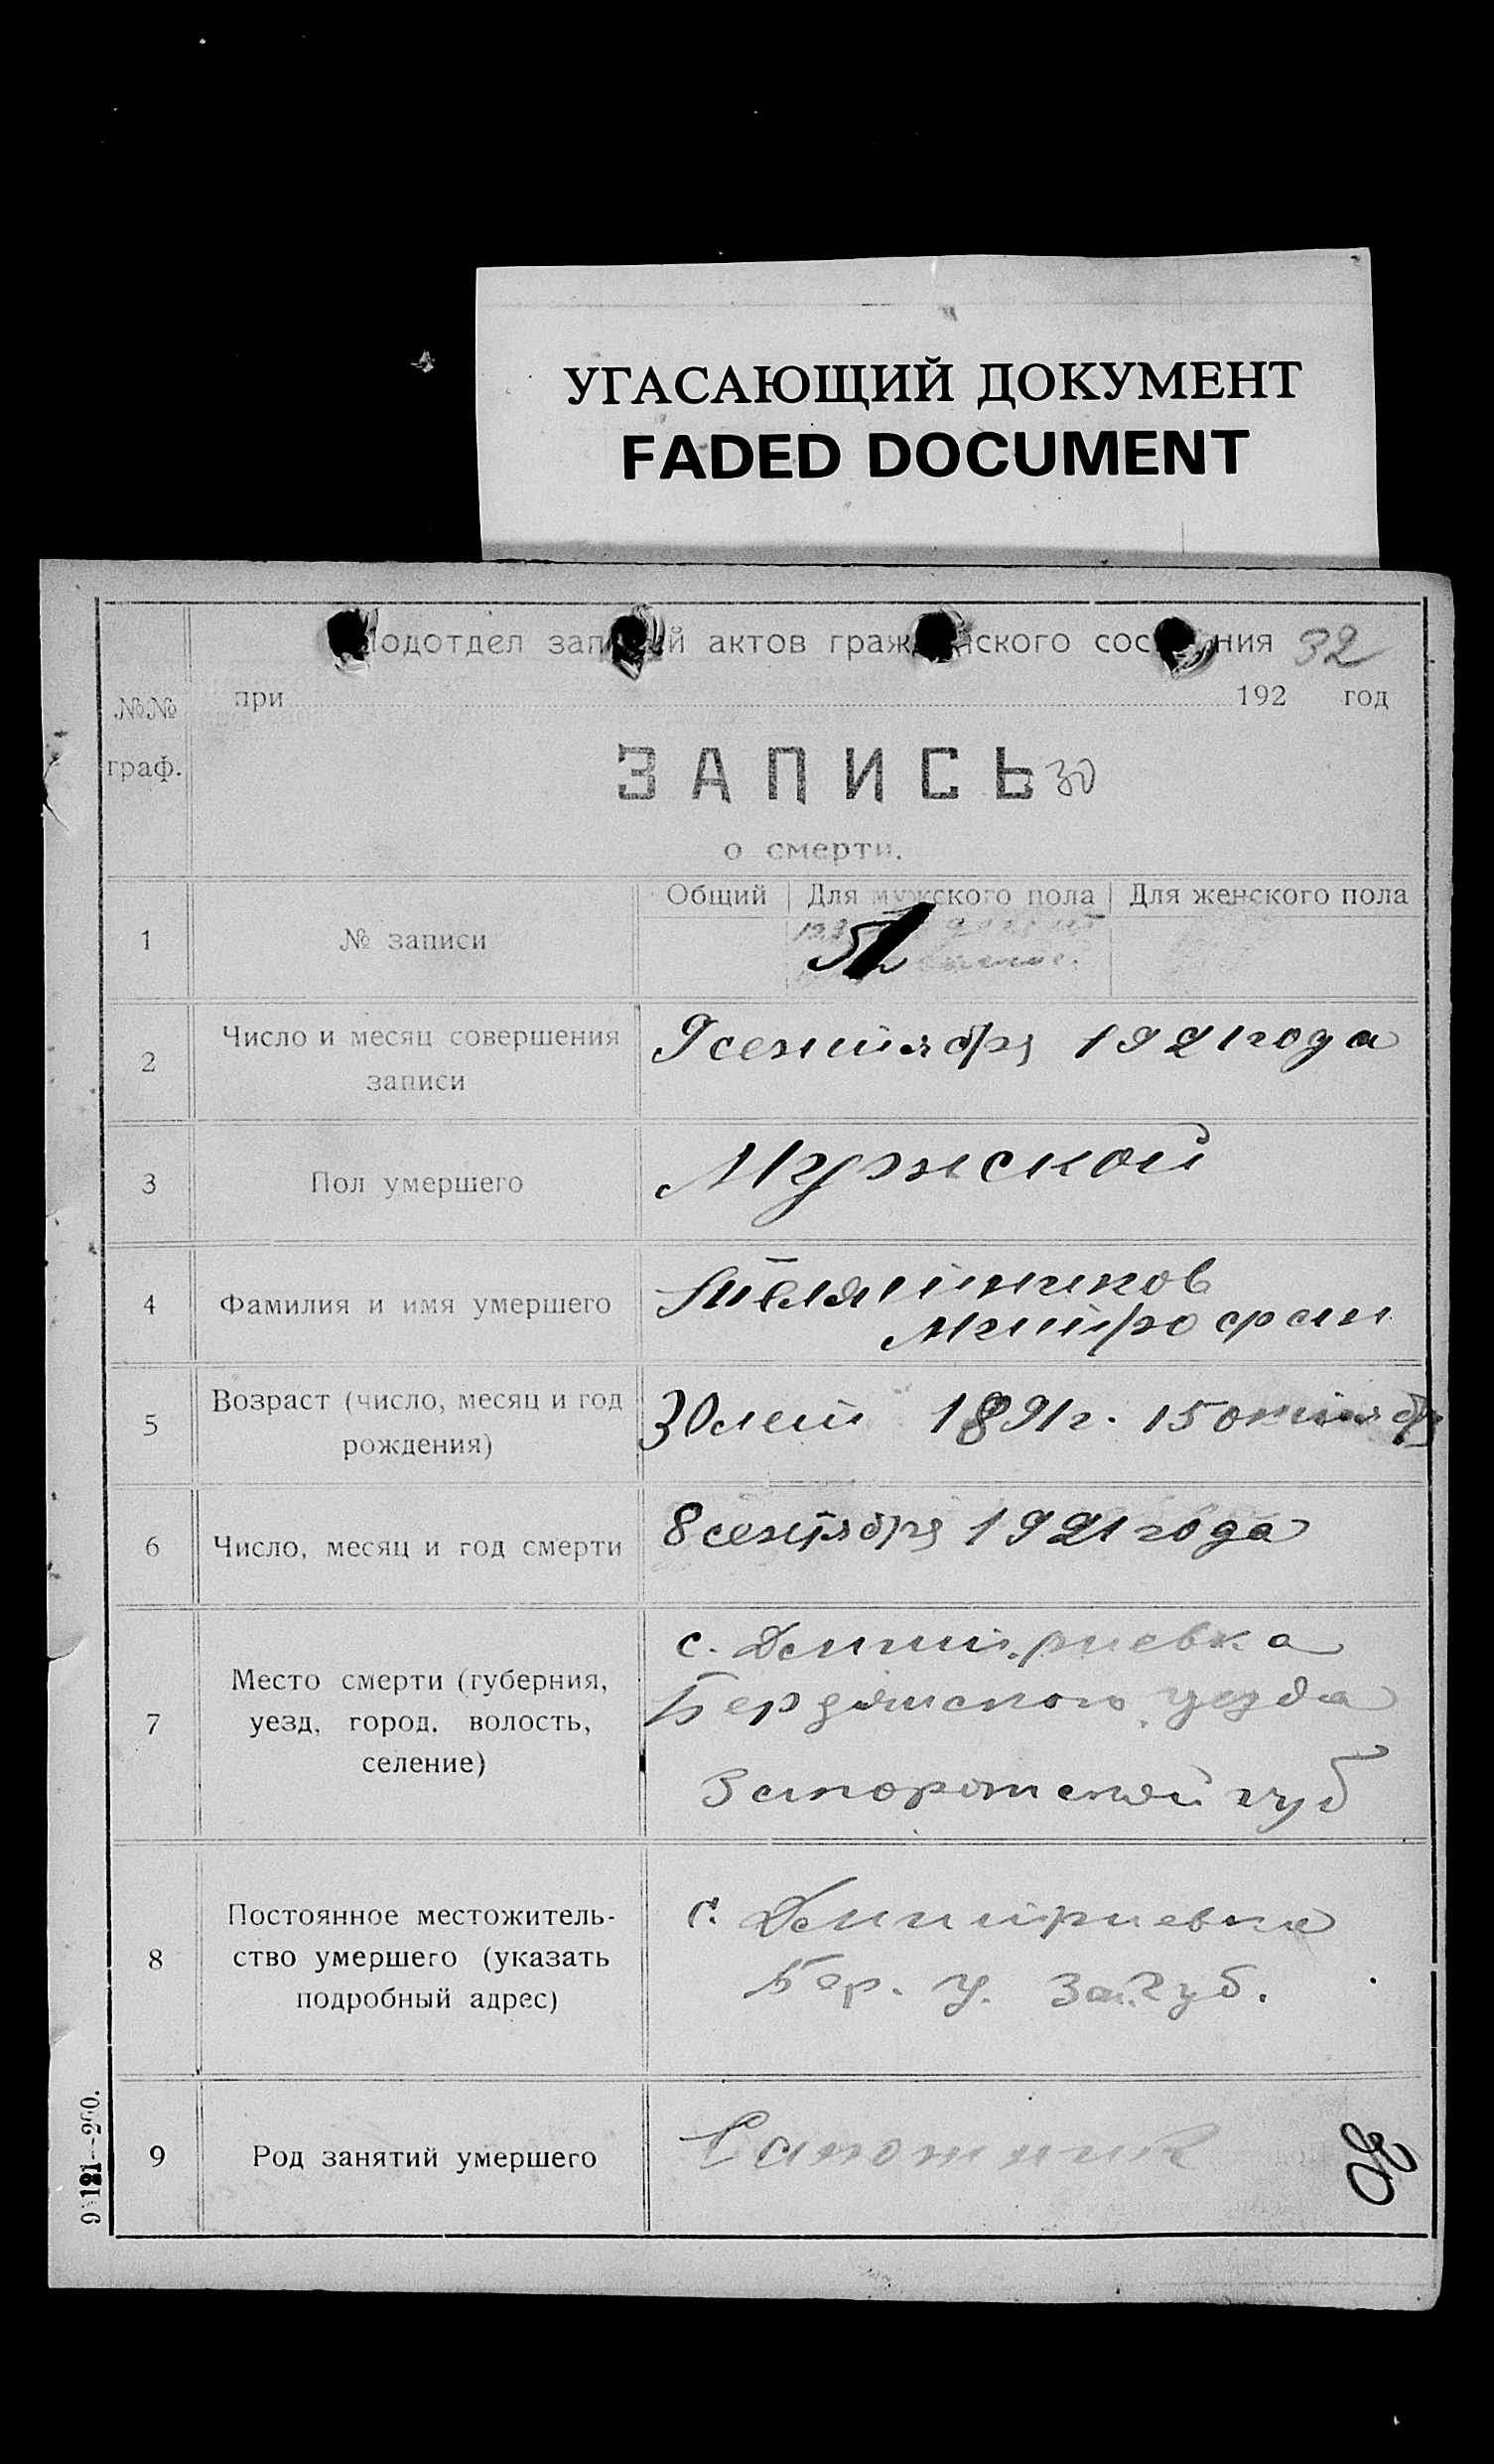 УГАСАЮЩИЙ ДОКУМЕНТ
FADED DOCUMENT
Подотдел записей актов гражданского состояния 32
при 192 год
№№
граф.
ЗАПИСЬ 30
о смерти.
Общий Для мужского пола Для женского пола
1 № записи
2 Число и месяц совершения
записи
9 сентября 1921 года
3 Пол умершего Мужской
4 Фамилия и имя умершего
Митрофан
5 Возраст (число, месяц и год
рождения)
30 лет 1891 г. 15 октябр
6 Число, месяц и год смерти 8 сентября 1921 года
7 Место смерти (губерния,
уезд, город, волость,
селение)
с. Дмитриевка
Бердянского уезда
Запорожской губ
8 Постоянное местожитель-
ство умершего (указать
подробный адрес)
с. Дмитриевка
Бер. у. Зап. губ.
9 Род занятий умершего Сапожник